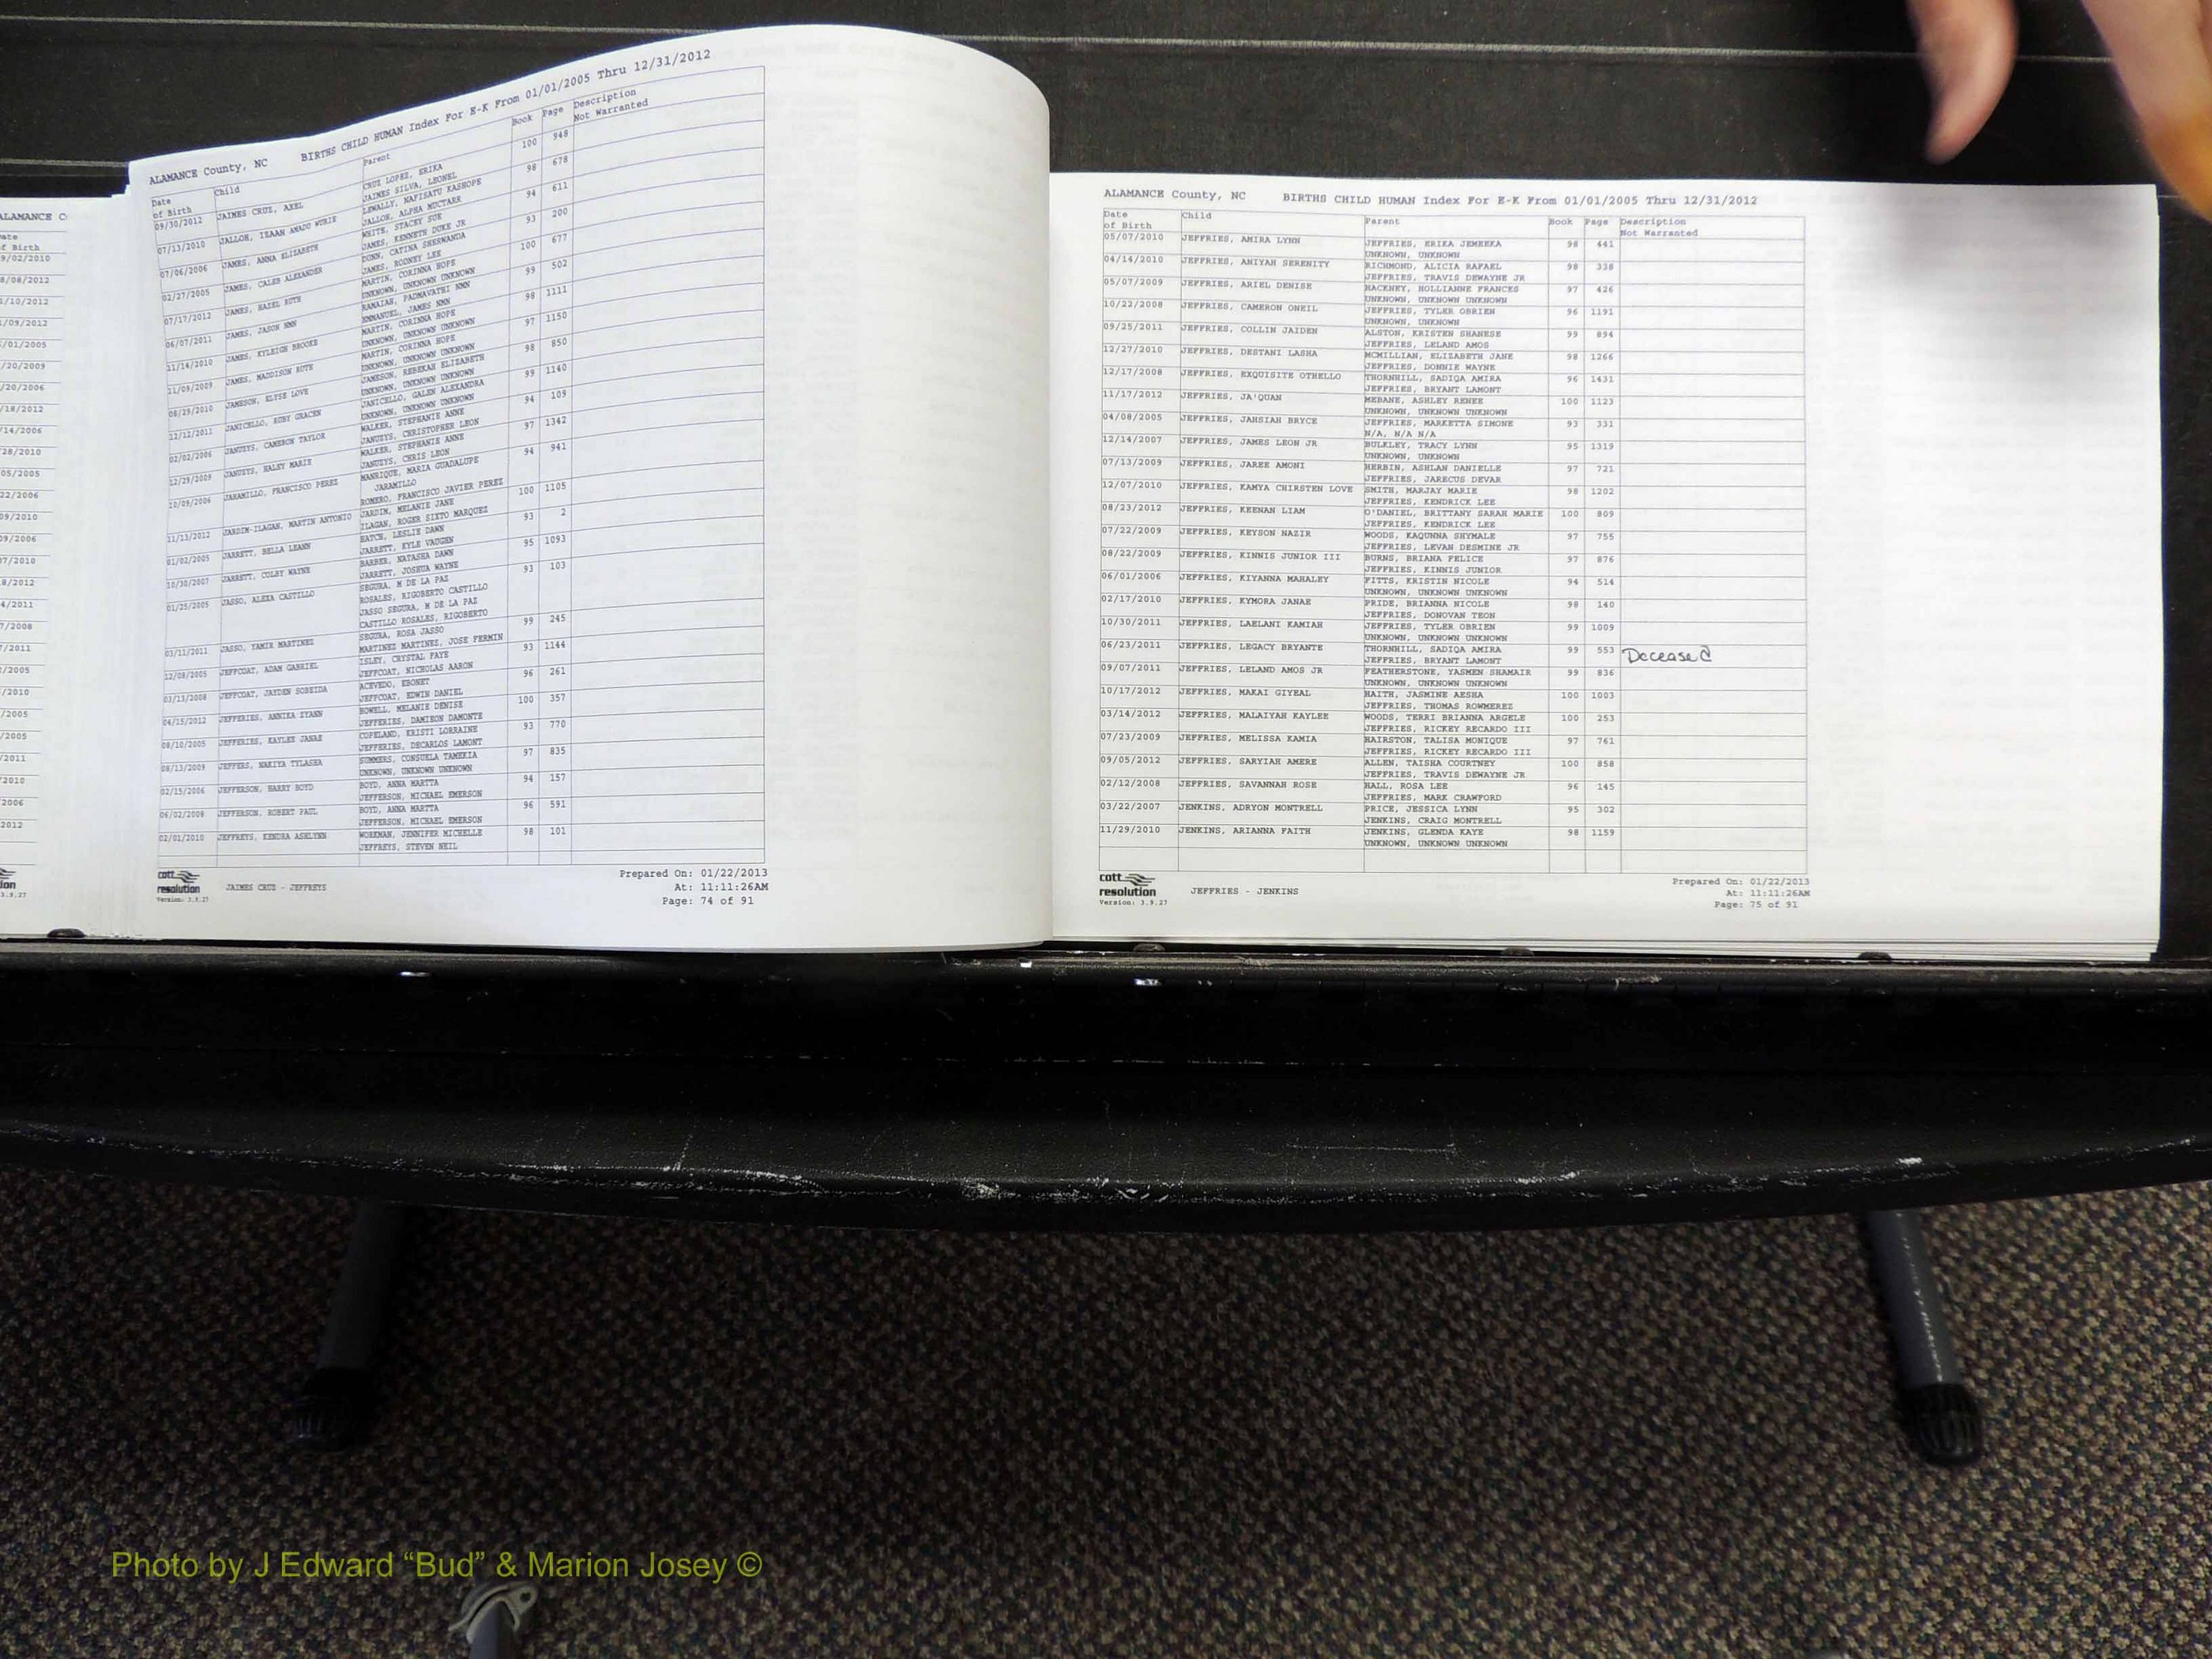 ALAMANCE C
ate
f Birth
9/02/2010
8/08/2012
1/10/2012
1/09/2012
/01/2005
/20/2009
/20/2006
/18/2012
/14/2006
28/2010
05/2005
22/2006
09/2010
09/2006
07/2010
8/2012
4/2011
7/2008
/2011
/2005
/2010
/2005
/2005
/2011
2010
2006
2012
ion
3.9.27
ALAMANCE County, NC BIRTHS CHILD HUMAN Index For E-K From 01/01/2005 Thru 12/31/2012
Date of Birth Child Parent Book Page Description Not Warranted
09/30/2012 JAIMES CRUZ, AXEL CRUZ LOPEZ, ERIKA 100 948
JAIMES SILVA, LEONEL
07/13/2010 JALLOH, IEAAN AMADO WURIE LEWALLY, NAFISATU KASHOPE 98 678
JALLOH, ALPHA MUCTARR
07/06/2006 JAMES, ANNA ELIZABETH WHITE, STACEY SUE 94 611
JAMES, KENNETH DUKE JR
02/27/2005 JAMES, CALEB ALEXANDER DUNN, CATINA SHERWANDA 93 200
JAMES, RODNEY LEE
07/17/2012 JAMES, HAZEL RUTH MARTIN, CORINNA HOPE 100 677
UNKNOWN, UNKNOWN UNKNOWN
06/07/2011 JAMES, JASON NMN RAMAIAH, PADMAVATHI NMN 99 502
EMMANUEL, JAMES NMN
11/14/2010 JAMES, KYLEIGH BROOKE MARTIN, CORINNA HOPE 98 1111
UNKNOWN, UNKNOWN UNKNOWN
11/09/2009 JAMES, MADDISON RUTH MARTIN, CORINNA HOPE 97 1150
UNKNOWN, UNKNOWN UNKNOWN
08/29/2010 JAMESON, ELYSE LOVE JAMESON, REBEKAH ELIZABETH 98 850
UNKNOWN, UNKNOWN UNKNOWN
12/12/2011 JANICELLO, RUBY GRACEN JANICELLO, GALEN ALEXANDRA 99 1140
UNKNOWN, UNKNOWN UNKNOWN
02/02/2006 JANUZYS, CAMERON TAYLOR WALKER, STEPHANIE ANNE 94 109
JANUZYS, CHRISTOPHER LEON
12/29/2009 JANUZYS, HALEY MARIE WALKER, STEPHANIE ANNE 97 1342
JANUZYS, CHRIS LEON
10/09/2006 JARAMILLO, FRANCISCO PEREZ MANRIQUE, MARIA GUADALUPE 94 941
JARAMILLO
ROMERO, FRANCISCO JAVIER PEREZ
11/13/2012 JARDIM-ILAGAN, MARTIN ANTONIO JARDIM, MELANIE JANE 100 1105
ILAGAN, ROGER SIXTO MARQUEZ
01/02/2005 JARRETT, BELLA LEANN HATCH, LESLIE DAWN 93 2
JARRETT, KYLE VAUGHN
10/30/2007 JARRETT, COLBY WAYNE BARBER, NATASHA DAWN 95 1093
JARRETT, JOSHUA WAYNE
01/25/2005 JASSO, ALEXA CASTILLO SEGURA, M DE LA PAZ 93 103
ROSALES, RIGOBERTO CASTILLO
JASSO SEGURA, M DE LA PAZ
CASTILLO ROSALES, RIGOBERTO
03/11/2011 JASSO, YAMIR MARTINEZ SEGURA, ROSA JASSO 99 245
MARTINEZ MARTINEZ, JOSE FERMIN
12/08/2005 JEFFCOAT, ADAM GABRIEL ISLEY, CRYSTAL FAYE 93 1144
JEFFCOAT, NICHOLAS AARON
03/13/2008 JEFFCOAT, JAYDEN SOBEIDA ACEVEDO, EBONET 96 261
JEFFCOAT, EDWIN DANIEL
04/15/2012 JEFFERIES, ANNIKA ZYANN HOWELL, MELANIE DENISE 100 357
JEFFERIES, DAMIEON DAMONTE
08/10/2005 JEFFERIES, KAYLEE JANAE COPELAND, KRISTI LORRAINE 93 770
JEFFERIES, DECARLOS LAMONT
08/13/2009 JEFFERS, NAKIYA TYLASHA SUMMERS, CONSUELA TAMEKIA 97 835
UNKNOWN, UNKNOWN UNKNOWN
02/15/2006 JEFFERSON, HARRY BOYD BOYD, ANNA MARTTA 94 157
JEFFERSON, MICHAEL EMERSON
06/02/2008 JEFFERSON, ROBERT PAUL BOYD, ANNA MARTTA 96 591
JEFFERSON, MICHAEL EMERSON
02/01/2010 JEFFREYS, KENDRA ASHLYNN WORKMAN, JENNIFER MICHELLE 98 101
JEFFREYS, STEVEN NEIL
cott
resolution JAIMES CRUZ - JEFFREYS
Version: 3.9.27
Prepared On: 01/22/2013
At: 11:11:26AM
Page: 74 of 91
ALAMANCE County, NC BIRTHS CHILD HUMAN Index For E-K From 01/01/2005 Thru 12/31/2012
Date of Birth Child Parent Book Page Description Not Warranted
05/07/2010 JEFFRIES, AMIRA LYNN JEFFRIES, ERIKA JEMEEKA 98 441
UNKNOWN, UNKNOWN
04/14/2010 JEFFRIES, ANIYAH SERENITY RICHMOND, ALICIA RAFAEL 98 338
JEFFRIES, TRAVIS DEWAYNE JR
05/07/2009 JEFFRIES, ARIEL DENISE HACKNEY, HOLLIANNE FRANCES 97 426
UNKNOWN, UNKNOWN UNKNOWN
10/22/2008 JEFFRIES, CAMERON ONEIL JEFFRIES, TYLER OBRIEN 96 1191
UNKNOWN, UNKNOWN
09/25/2011 JEFFRIES, COLLIN JAIDEN ALSTON, KRISTEN SHANESE 99 894
JEFFRIES, LELAND AMOS
12/27/2010 JEFFRIES, DESTANI LASHA MCMILLIAN, ELIZABETH JANE 98 1266
JEFFRIES, DONNIE WAYNE
12/17/2008 JEFFRIES, EXQUISITE OTHELLO THORNHILL, SADIQA AMIRA 96 1431
JEFFRIES, BRYANT LAMONT
11/17/2012 JEFFRIES, JA'QUAN MEBANE, ASHLEY RENEE 100 1123
UNKNOWN, UNKNOWN UNKNOWN
04/08/2005 JEFFRIES, JAHSIAH BRYCE JEFFRIES, MARKETTA SIMONE 93 331
N/A, N/A N/A
12/14/2007 JEFFRIES, JAMES LEON JR BULKLEY, TRACY LYNN 95 1319
UNKNOWN, UNKNOWN
07/13/2009 JEFFRIES, JAREE AMONI HERBIN, ASHLAN DANIELLE 97 721
JEFFRIES, JARECUS DEVAR
12/07/2010 JEFFRIES, KAMYA CHIRSTEN LOVE SMITH, MARJAY MARIE 98 1202
JEFFRIES, KENDRICK LEE
08/23/2012 JEFFRIES, KEENAN LIAM O'DANIEL, BRITTANY SARAH MARIE 100 809
JEFFRIES, KENDRICK LEE
07/22/2009 JEFFRIES, KEYSON NAZIR WOODS, KAQUNNA SHYMALE 97 755
JEFFRIES, LEVAN DESMINE JR
08/22/2009 JEFFRIES, KINNIS JUNIOR III BURNS, BRIANA FELICE 97 876
JEFFRIES, KINNIS JUNIOR
06/01/2006 JEFFRIES, KIYANNA MAHALEY FITTS, KRISTIN NICOLE 94 514
UNKNOWN, UNKNOWN UNKNOWN
02/17/2010 JEFFRIES, KYMORA JANAE PRIDE, BRIANNA NICOLE 98 140
JEFFRIES, DONOVAN TEON
10/30/2011 JEFFRIES, LAELANI KAMIAH JEFFRIES, TYLER OBRIEN 99 1009
UNKNOWN, UNKNOWN UNKNOWN
06/23/2011 JEFFRIES, LEGACY BRYANTE THORNHILL, SADIQA AMIRA 99 553 Deceased
JEFFRIES, BRYANT LAMONT
09/07/2011 JEFFRIES, LELAND AMOS JR FEATHERSTONE, YASMEN SHAMAIR 99 836
UNKNOWN, UNKNOWN UNKNOWN
10/17/2012 JEFFRIES, MAKAI GIYEAL HAITH, JASMINE AESHA 100 1003
JEFFRIES, THOMAS ROWMEREZ
03/14/2012 JEFFRIES, MALAIYAH KAYLEE WOODS, TERRI BRIANNA ARGELE 100 253
JEFFRIES, RICKEY RECARDO III
07/23/2009 JEFFRIES, MELISSA KAMIA HAIRSTON, TALISA MONIQUE 97 761
JEFFRIES, RICKEY RECARDO III
09/05/2012 JEFFRIES, SARYIAH AMERE ALLEN, TAISHA COURTNEY 100 858
JEFFRIES, TRAVIS DEWAYNE JR
02/12/2008 JEFFRIES, SAVANNAH ROSE HALL, ROSA LEE 96 145
JEFFRIES, MARK CRAWFORD
03/22/2007 JENKINS, ADRYON MONTRELL PRICE, JESSICA LYNN 95 302
JENKINS, CRAIG MONTRELL
11/29/2010 JENKINS, ARIANNA FAITH JENKINS, GLENDA KAYE 98 1159
UNKNOWN, UNKNOWN UNKNOWN
cott
resolution JEFFRIES - JENKINS
Version: 3.9.27
Prepared On: 01/22/2013
At: 11:11:26AM
Page: 75 of 91
Photo by J Edward “Bud” & Marion Josey ©